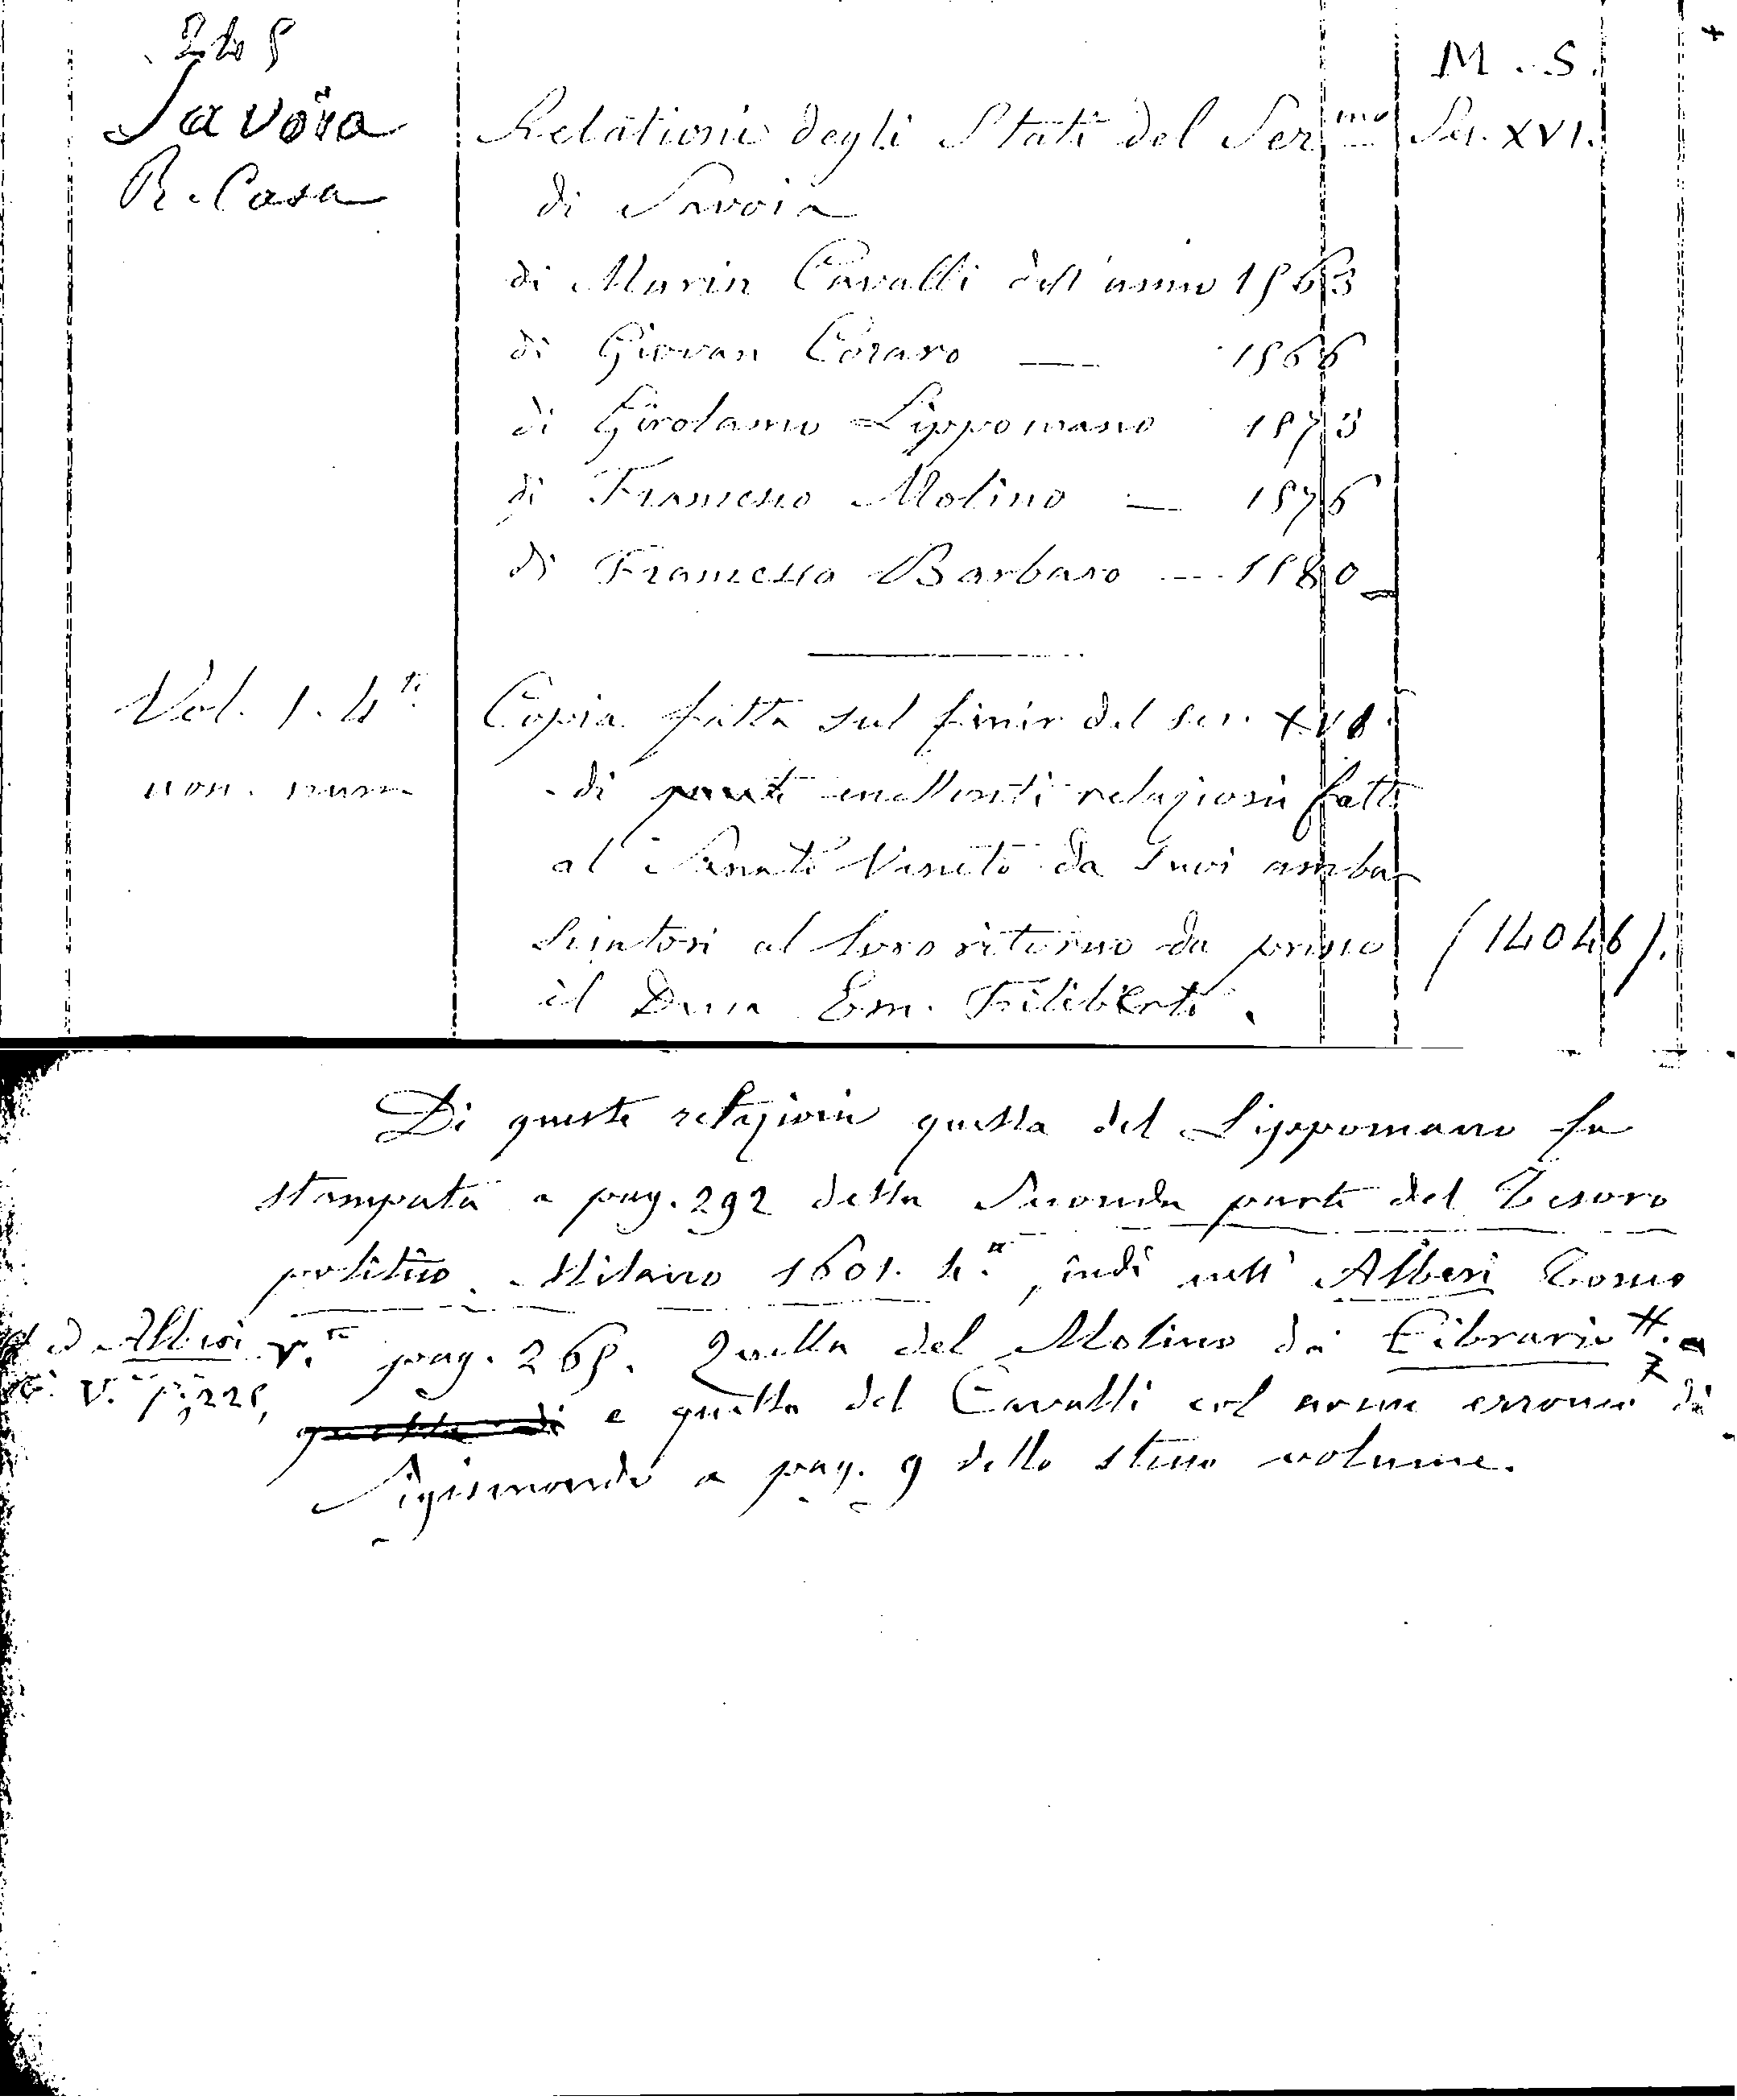 245
M. S.
Savoia
Relationi degli Stati del Ser.mo
Sec. XVI.
R. Casa
di Savoia
di Marin Cavalli dell'anno 1563
di Giovan Coraro — 1566
di Girolamo Lippomano 1573
di Francesco Molino — 1576
di Francesco Barbaro — 1580
Vol. 1. 4º
Copia fatta sul finir del sec. XVI.
non. num.
di queste eccellenti relazioni fatte
al Senato Veneto da suoi amba
sciatori al loro ritorno da presso
(14046).
il Duca Em. Filiberto.
Di queste relazioni quella del Lippomano fu
stampata a pag. 292 della Seconda parte del Tesoro
politico. Milano 1601. 4.º, indi nell' Alberi Tomo
V.º pag. 265. Quella del Molino da Cibrario
ed Alberi
V. p. 225,
quella di e quella del Cavalli col nome erroneo di
Sigismondo a pag. 9 dello stesso volume.